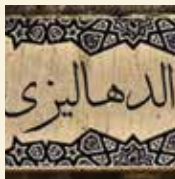 الدهاليزى